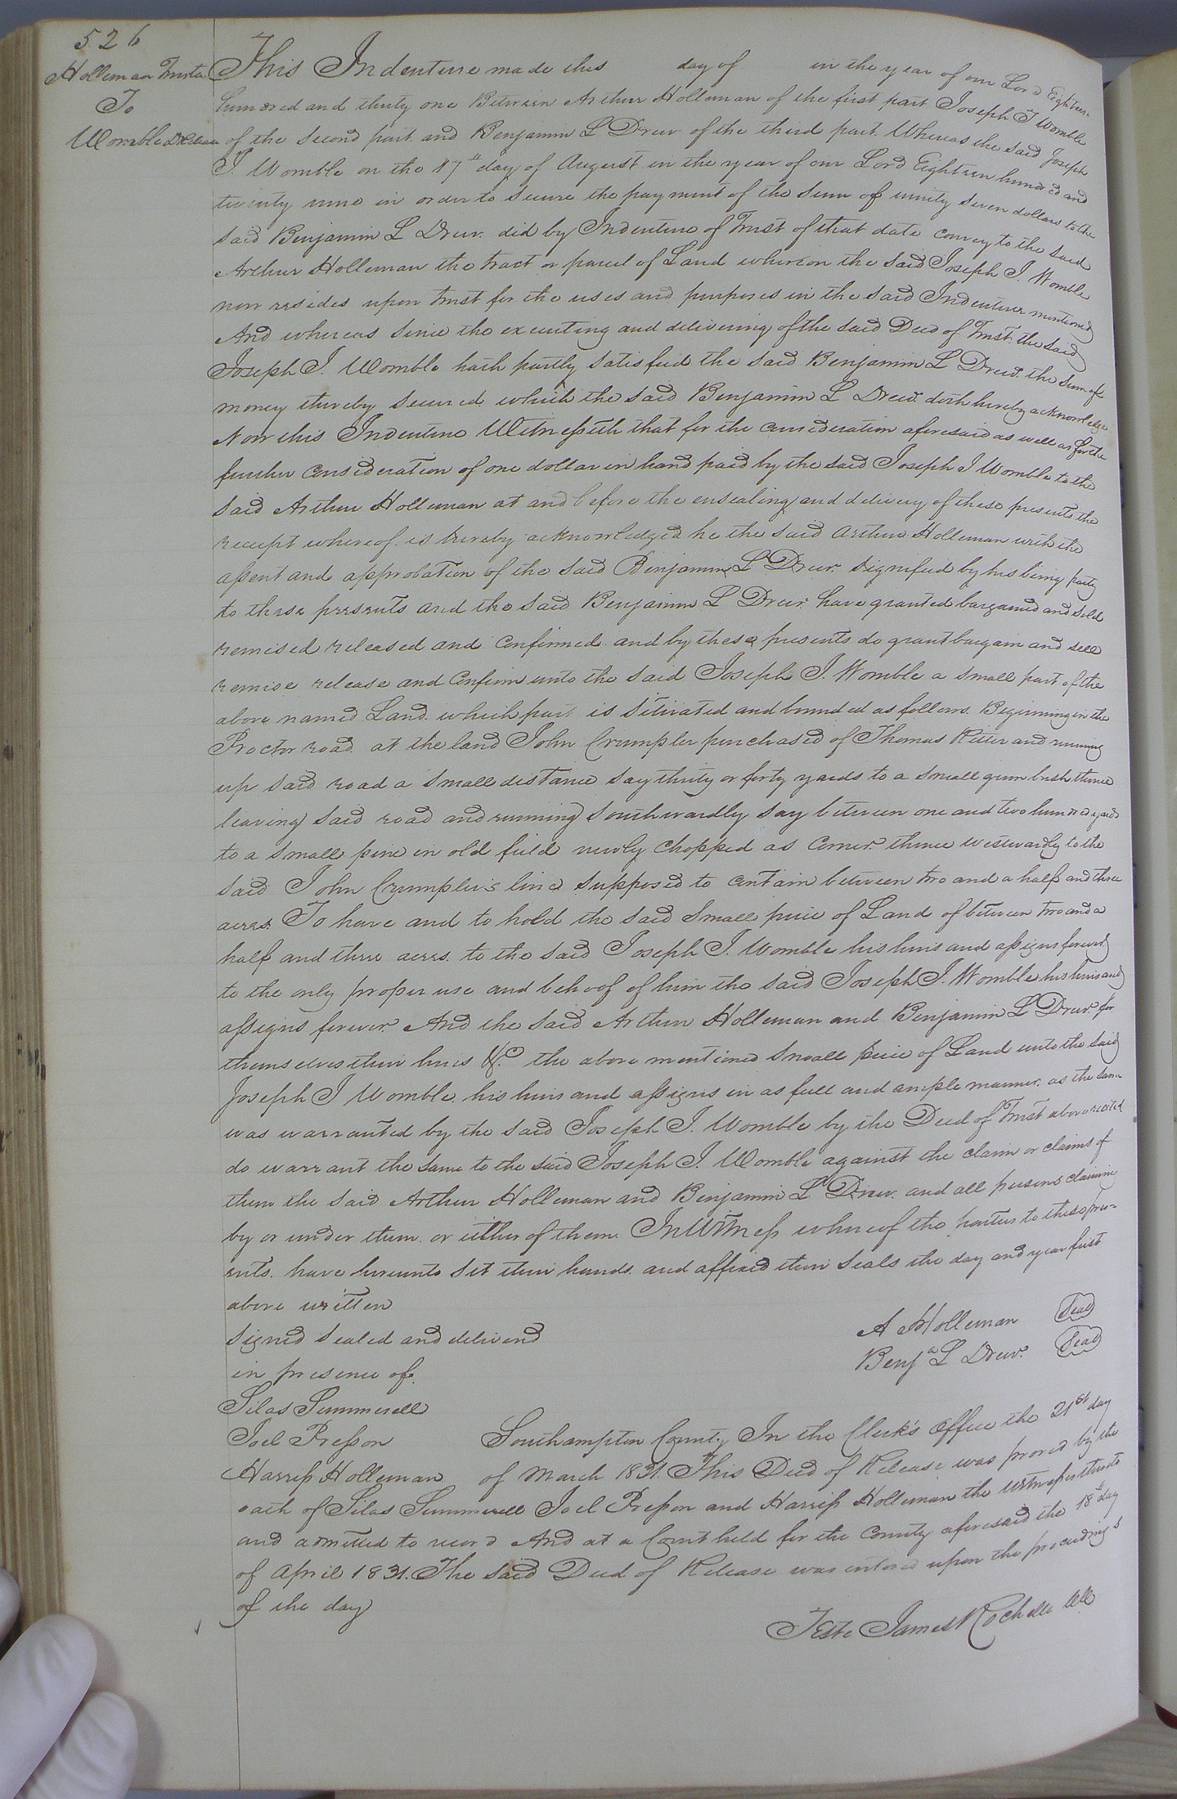 526
Holleman Truste
To
Womble D Release
This Indenture made this day of in the year of our Lord Eighteen
hundred and thirty one Between Arthur Holleman of the first part Joseph J Womble
of the second part and Benjamin L Drew of the third part. Whereas the said Joseph
J. Womble on the 17th day of August in the year of our Lord Eighteen hundred and
twenty nine in order to secure the payment of the sum of ninity seven dollars to the
said Benjamin L Drew. did by Indenture of Trust of that date convey to the said
Arthur Holleman the tract or parcel of Land whereon the said Joseph J. Womble
now resides upon trust for the uses and purposes in the said Indenture mentioned
And whereas since the executing and delivering of the said Deed of Trust. the said
Joseph J. Womble hath partly satisfied the said Benjamin L Drew. the sum of
money thereby secured which the said Benjamin L Drew. doth hereby acknowledge
Now this Indenture Witnesseth that for the consideration aforesaid as well as for the
further consideration of one dollar in hand paid by the said Joseph J Womble to the
said Arthur Holleman at and before the ensealing and delivery of these presents the
receipt whereof is hereby acknowledged he the said Arthur Holleman with the
assent and approbation of the said Benjamin L Drew. signified by his being party
to these presents and the said Benjamin L Drew. have granted bargained and sold
remised released and confirmed and by these presents do grant bargain and sell
remise release and confirm unto the said Joseph J. Womble a small part of the
above named Land. which part is situated and bounded as follows. Beginning in the
Proctor road at the land John Crumpler purchased of Thomas Ritter and running
up said road a small distance say thirty or forty yards to a small gum bush thence
leaving said road and running southwardly say between one and two hundred yards
to a small pine in old field newly chopped as corner. thence westwardly to the
said John Crumpler's line supposed to contain between two and a half and three
acres. To have and to hold the said small piece of Land of between two and a
half and three acres. to the said Joseph J. Womble his heirs and assigns forever
to the only proper use and behoof of him the said Joseph J. Womble his heirs and
assigns forever And the said Arthur Holleman and Benjamin L Drew. for
themselves their heirs &c the above mentioned small piece of Land unto the said
Joseph J Womble his heirs and assigns in as full and ample manner. as the same
was warranted by the said Joseph J. Womble by the Deed of Trust above recited
do warrant the same to the said Joseph J. Womble against the claim or claims of
them the said Arthur Holleman and Benjamin L Drew. and all persons claiming
by or under them. or either of them. In Witness whereof the parties to these pres-
ents. have hereunto set their hands. and affixed their seals the day and year first
above written
signed sealed and delivered
in presence of.
Silas Summerell
Joel Presson
Harriss Holleman
A Holleman Seal
Benja L Drew. Seal
Southampton County In the Clerk's Office the 21st day
of March 1831. This Deed of Release was proved by the
oath of Silas Summerell Joel Presson and Harriss Holleman the witnesses thereto
and admitted to record And at a Court held for the County aforesaid the 18th day
of April 1831. The said Deed of Release was entered upon the proceedings
of the day
Teste James Rochelle Clk